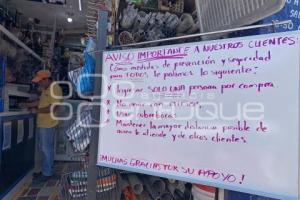 AVISO IMPORTANTE A NUESTROS CLIENTES:
Como medidas de prevención y seguridad
para todos, le pedimos lo siguiente:
Ingresar SOLO UNA persona por compra
No venir con niños.
Usar cubrebocas
Mantener la mayor distancia posible de
quien te atiende y de otros clientes.
¡MUCHAS GRACIAS POR SU APOYO!